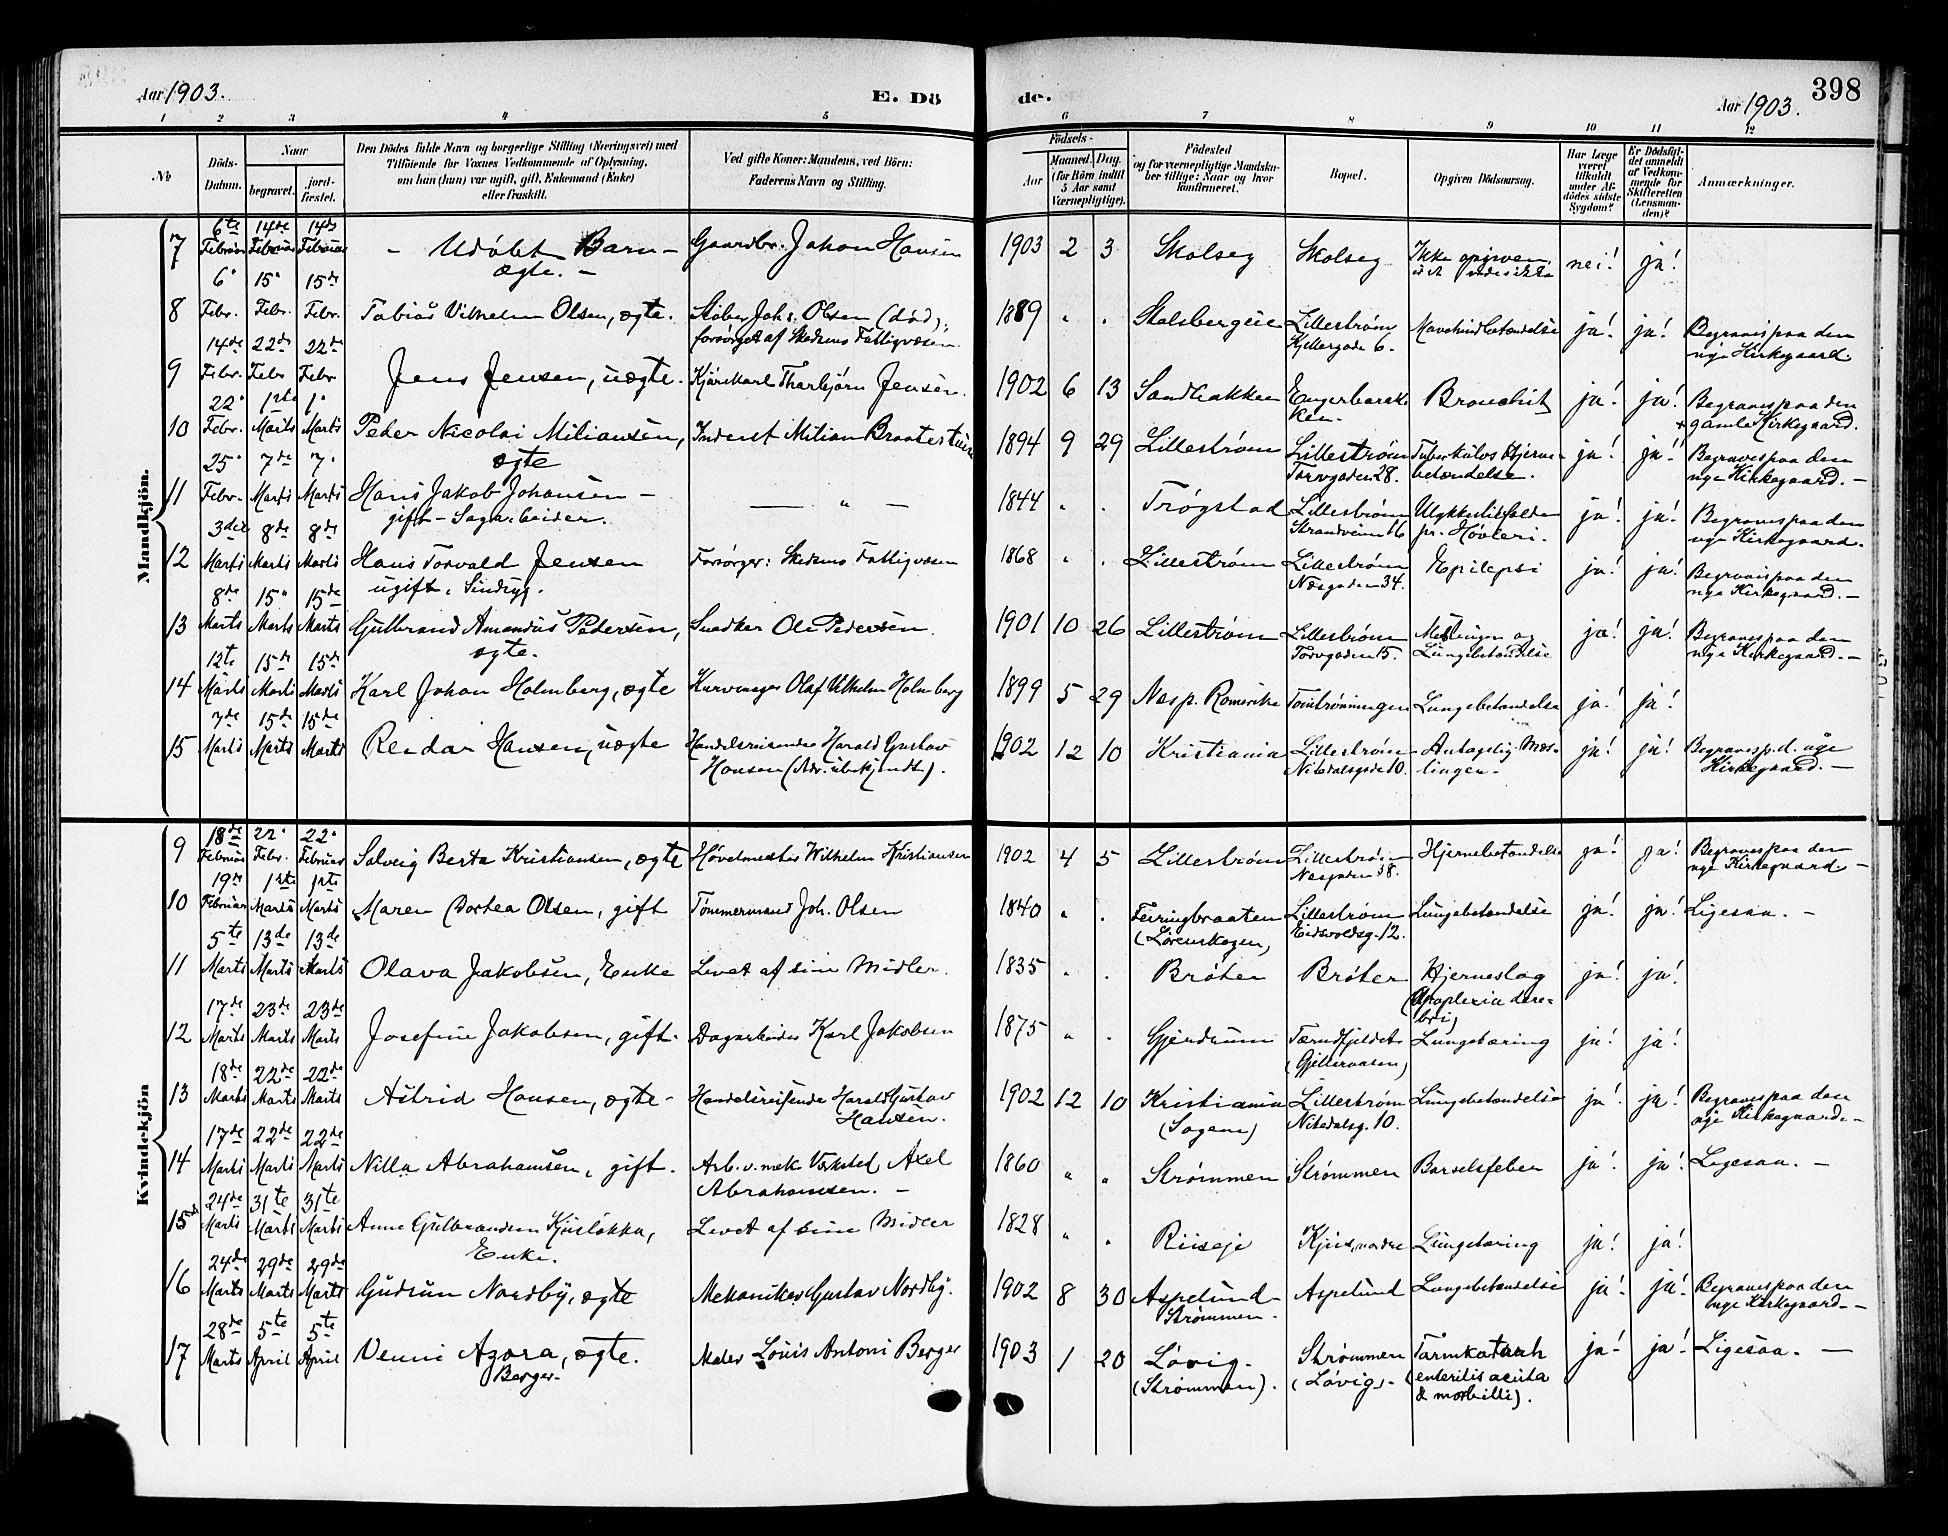 Aar 1903.
E. Dö
de.
Aar 1903.
398
1 2 3 4 5 6 7 8 9 10 11 12
No
Döds-Datum.
Naar
begravet.
jord-fæstet.
Den Dödes fulde Navn og borgerlige Stilling (Næringsvei) med
Tilföiende for Voxnes Vedkommende af Oplysning,
om han (hun) var ugift, gift, Enkemand (Enke)
eller fraskilt.
Ved gifte Koner: Mandens, ved Börn:
Faderens Navn og Stilling.
Födsels-
Aar
Maaned. Dag.
(for Börn indtil
5 Aar samt
Værnepligtige).
Födested
og for værnepligtige Mandska-
ber tillige: Naar og hvor
konfirmeret.
Bopæl.
Opgiven Dödsaarsag.
Har Læge
været
tilkaldt
under Af-
dödes sidste
Sygdom?
Er Dödsfal-
det anmeldt
af Vedkom-
mende for
Skifteretten
(Lensman-
den)?
Anmærkninger.
Mandkjön.
7 6te Februar 14de Februar 14de Februar - Udøbt Barn - Gaardbr. Johan Hansen 1903 2 3 Skolseg Skolseg Ikke opgiven nei! ja!
ægte. -
8 6° Febr. 15° Febr. 15de Febr. Tobias Vilhelm Olsen, ægte. Støber Johs. Olsen (død), 1889 " . Stalsbergeie Lillestrøm Mavehindebetændelse ja! ja! Begraves paa den
forsørget af Skedsmo Fattigvæsen Kjellergade 6. nye Kirkegaard.
9 14de Febr. 22de Febr 22de Febr Jens Jensen, uægte. Kjørekarl Thorbjørn Jensen. 1902 6 13 Sandbakken Bronchit ja! ja! Begraves paa den
gamle Kirkegaard.
10 22° Febr. 1ste Marts 1° Marts Peder Nicolai Miliansen, Inderst Milian Braatestuen 1894 9 29 Lillestrøm Lillestrøm Tuberkuløs Hjerne- ja! ja! Begraves paa den
ægte Torvgaden 28. betændelse. nye Kirkegaard. -
11 25° Febr. 7de Marts 7° Marts Hans Jakob Johansen - — " — 1844 " . Trøgstad Lillestrøm ja! ja! Begraves paa den
gift - Sagarbeider. Strandveien 16 pr. Høvleri. nye Kirkegaard.
12 3die Marts 8de Marts 8de Marts Hans Torvald Jensen Forsørger: Skedsmo Fattigvæsen 1868 " . Lillestrøm Lillestrøm Epilepsi ja! ja! Begraves paa den
ugift, Sindsyg. Næsgaden 34. nye Kirkegaard. -
13 8de Marts 15° Marts 15de Marts Gulbrand Amandus Pedersen, Snedker Ole Pedersen. 1901 10 26 Lillestrøm Lillestrøm Meslinger og ja! ja! Begraves paa den
ægte. Torvgaden 15. Lungebetændelse nye Kirkegaard. -
14 12te Marts 15de Marts 15de Marts Karl Johan Holmberg, ægte Kurvmager Olaf Vilhelm Holmberg 1899 5 29 Næs p. Romerike Lungebetændelse ja! ja!
15 7de Marts 15de Marts 15de Marts Reidar Hansen, uægte Handelsreisende Harald Gustav 1902 12 10 Kristiania Lillestrøm Antagelig Mæs- ja! ja! Begraves p. d. nye
Hansen (Adr. ubekjendt). Nitedalsgade 10. linger. Kirkegaard. -
Kvindekjön
9 18de Februar 22° Febr. 22° Februar Solveig Berta Kristiansen, ægte Høvelmester Wilhelm Kristiansen 1902 4 5 Lillestrøm Lillestrøm Hjernebetændelse ja! ja! Begraves paa den
Næsgaden 38. nye Kirkegaard -
10 19de Februar 1ste Marts 1ste Marts Maren Dortea Olsen, gift Tømmermand Joh. Olsen 1840 " . Feiringbraaten Lillestrøm Lungebetændelse ja! ja! Ligesaa. -
(Lørenskogen) Eidsvoldsg. 12.
11 5te Marts 13de Marts 13de Marts Olava Jakobsen, Enke Levet af sine Midler. 1835 " . Brøter Brøter Hjerneslag ja! ja!
(Apoplexia cere-
bri)
12 17de Marts 23de Marts 23de Marts Josefine Jakobsen, gift. Dagarbeider Karl Jakobsen 1875 " . Gjerdrum Tærudfjeldet Lungetæring ja! ja!
(Gjelleraasen)
13 18de Marts 22de Marts 22de Marts Astrid Hansen, ægte - Handelsreisende Harald Gustav 1902 12 10 Kristiania Lillestrøm Lungebetændelse ja! ja! Begraves paa den
Hansen. (Sagene) Nitedalsg. 10. nye Kirkegaard. -
14 17de Marts 22de Marts 22de Marts Nilla Abrahamsen, gift. Arb. v. mek. Værksted Axel 1860 " " Strømmen Strømmen Barselsfeber ja! ja! Ligesaa. -
Abrahamsen. -
15 24de Marts 31te Marts 31te Marts Anne Gulbrandsen Kjusløkka, Levet af sine Midler 1828 " " Riiseje Kjus, nordre Lungetæring ja! ja!
Enke.
16 24de Marts 29de Marts 29de Marts Gudrun Nordby, ægte Mekaniker Gustav Nordby. 1902 8 30 Aspelund Aspelund Lungebetændelse ja! ja! Begraves paa den
Strømmen. nye Kirkegaard. -
17 28de Marts 5te April 5te April Venni Azora, ægte. Maler Louis Antoni Berger 1903 1 20 Løvig. Strømmen Tarmkatarrh ja! ja! Ligesaa. —
Berger. (Strømmen). (Løvig). (enteritis acuta
& morbilli).